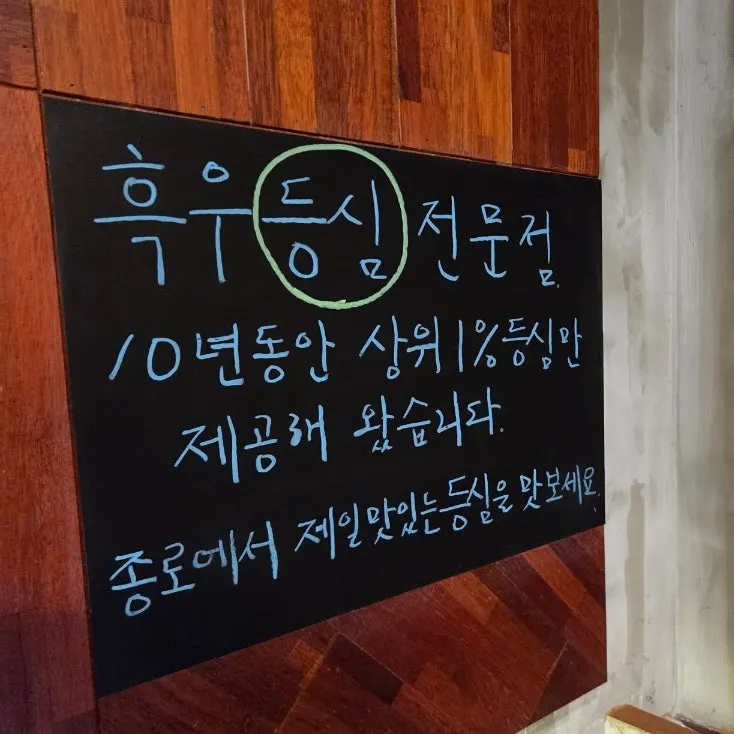 흑우등심 전문점.
10년동안 상위1%등심만
제공해 왔습니다.
종로에서 제일맛있는등심을 맛보세요.